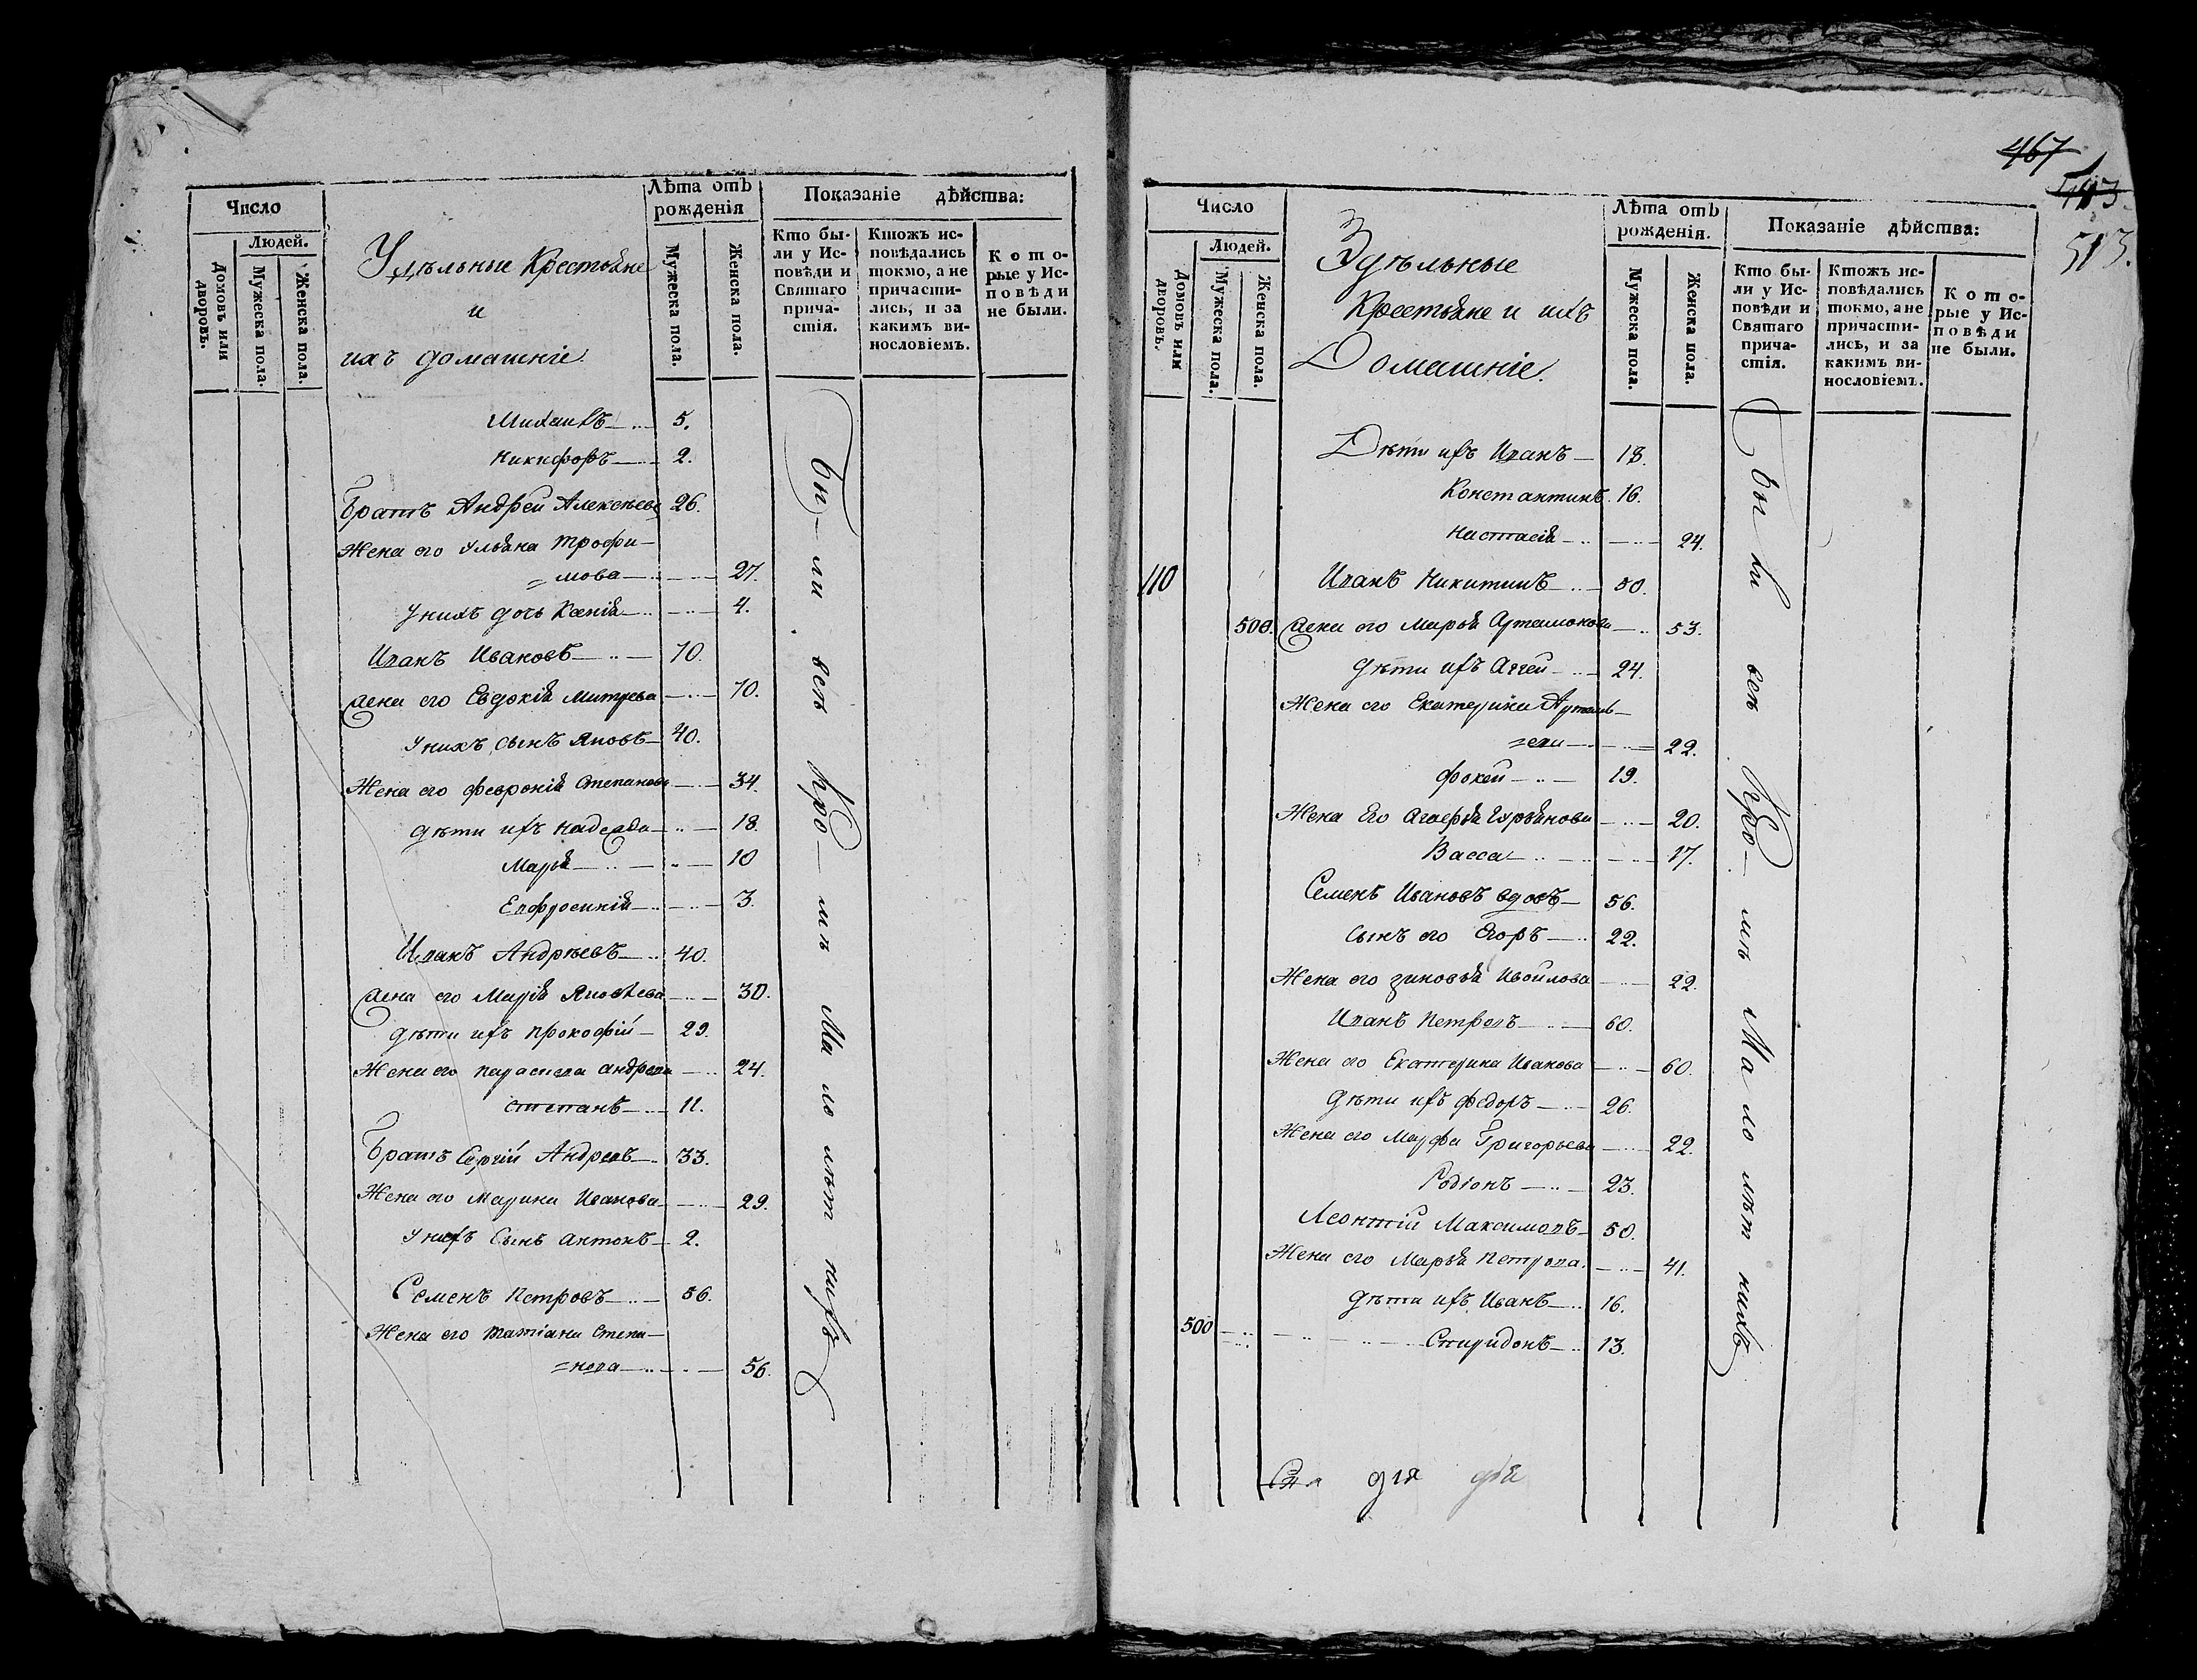 Число
Людей.
Домовъ или дворовъ.
Мужеска пола.
Женска пола.
Удѣльныe Крестьяне
и
ихъ домашнiе
Лѣта отъ рожденiя
Мужеска пола.
Женска пола.
Показанiе дѣйства:
Кто бы-
ли у Ис-
повѣди и
Святаго
прича-
стiя.
Ктожъ ис-
повѣдались
токмо, а не
причасти-
лись, и за
какимъ ви-
нословiемъ.
Кото-
рые у Ис-
повѣди
не были.
Михаилъ 5.
Никифоръ 2.
Братъ Андрей Алексѣевъ 26.
Жена его Ульяна Трофи-
=мова 27.
У нихъ дочь Ксенiя 4.
Иванъ Ивановъ 70.
Жена его Евдокiя Митрева 70.
У нихъ сынъ Яковъ 40.
Жена его Февронiя Степанова 34.
Дѣти ихъ Надежда 18.
Марья 10
Евфросинiя 3.
Иванъ Андрѣевъ 40.
Жена его Марiя Яковлева 30.
Дѣти ихъ Прокофiй 29.
Жена его Параскева Андреева 24.
Степанъ 11.
Братъ Сергiй Андреевъ 33.
Жена его Марина Иванова 29.
У нихъ Сынъ Антонъ 2.
Семенъ Петровъ 56.
Жена его Татiана Степа-
=нова 56.
Бы-ли всѣ кро-мѣ Ма ло лѣт нихъ
467
513.
Число
Людей.
Домовъ или дворовъ.
Мужеска пола.
Женска пола.
Удѣльные
Крестьяне и ихъ
Домашнiе.
Лѣта отъ рожденiя.
Мужеска пола.
Женска пола.
Показанiе дѣйства:
Кто бы-
ли у Ис-
повѣди и
Святаго
прича-
стiя.
Ктожъ ис-
повѣдались
токмо, а не
причасти-
лись, и за
какимъ ви-
нословiемъ.
Кото-
рые у Ис-
повѣди
не были.
Дѣти ихъ Иванъ 18.
Константинъ 16.
Настасiя 24.
110 Иванъ Никитинъ 50.
500. Жена его Марья Артамонова 53.
Дѣти ихъ Аггей 24.
Жена его Екатерина Артемь-
=ева 22.
Фокей 19.
Жена Его Агафья Гурьянова 20.
Васса 17.
Семенъ Ивановъ вдовъ 56.
Сынъ его Егоръ 22.
Жена его Зиновья Ивойлова 22.
Иванъ Петровъ 60.
Жена его Екатерина Иванова 60.
Дѣти ихъ Федоръ 26.
Жена его Марфа Григорьева 22.
Родiонъ 23.
Леонтiй Максимовъ 50.
Жена его Марья Петрова. 41.
Дѣти ихъ Иванъ 16.
500 Спиридонъ 13.
Бы ли всѣ кро-мѣ Ма ло лѣт нихъ
для